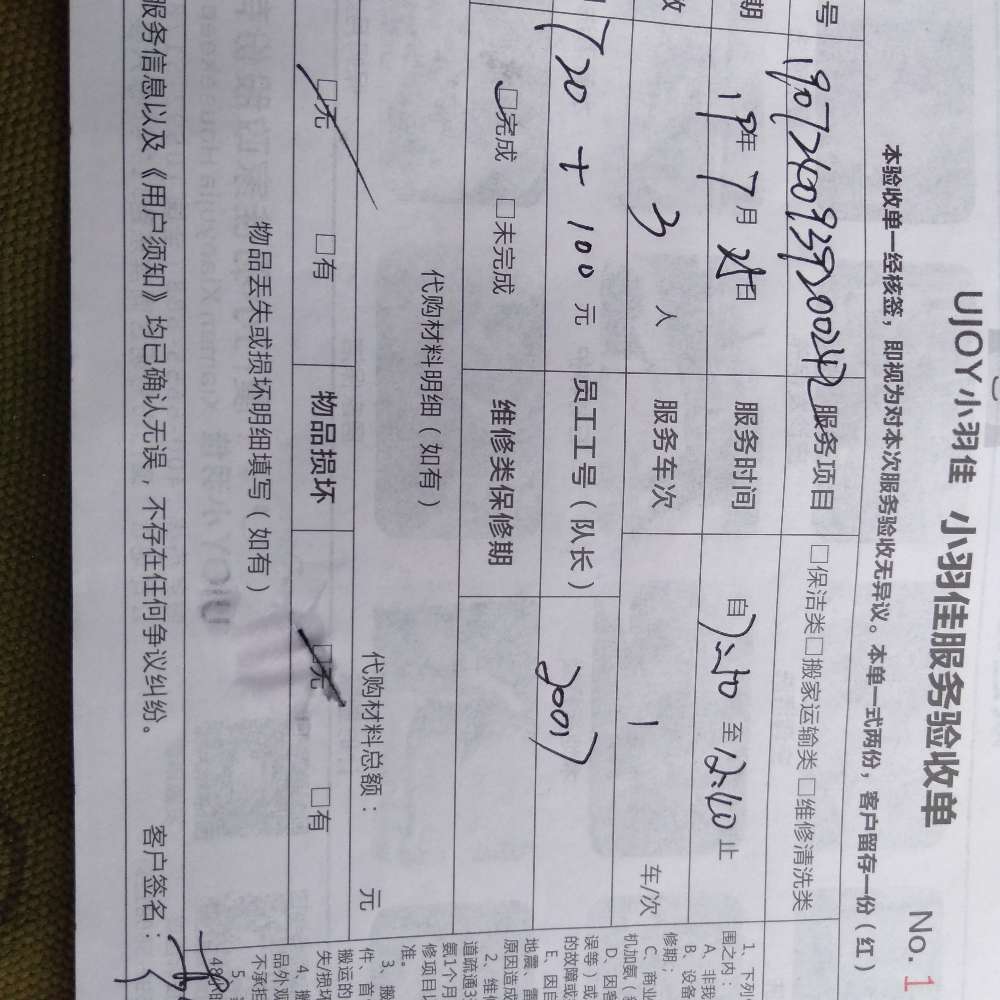 UJOY小羽佳 小羽佳服务验收单 No. 1
本验收单一经核签，即视为对本次服务验收无异议。本单一式两份，客户留存一份（红）
号 服务项目 □保洁类□搬家运输类 □维修清洗类
期 19年 7月 日 服务时间 自 至 12:40 止
数 3 人 服务车次 1 车/次
720 + 100 元 员工工号（队长） 2007
□完成 □未完成 维修类保修期
代购材料明细（如有） 代购材料总额： 元
□无 □有 物品损坏 □无 □有
物品丢失或损坏明细填写（如有）
服务信息以及《用户须知》均已确认无误，不存在任何争议纠纷。 客户签名：
1、下列
围之内：
A、非我
B、设备
修期；
C、商业
机加氨（
D、因客
误等）或
的故障或
E、因自
地震、雷
原因造成
2、维修
道疏通3
氨1个月
修项目以
准。
3、搬
件、首
搬运的
失/损坏
4、搬
品外观
48
5、
不承担